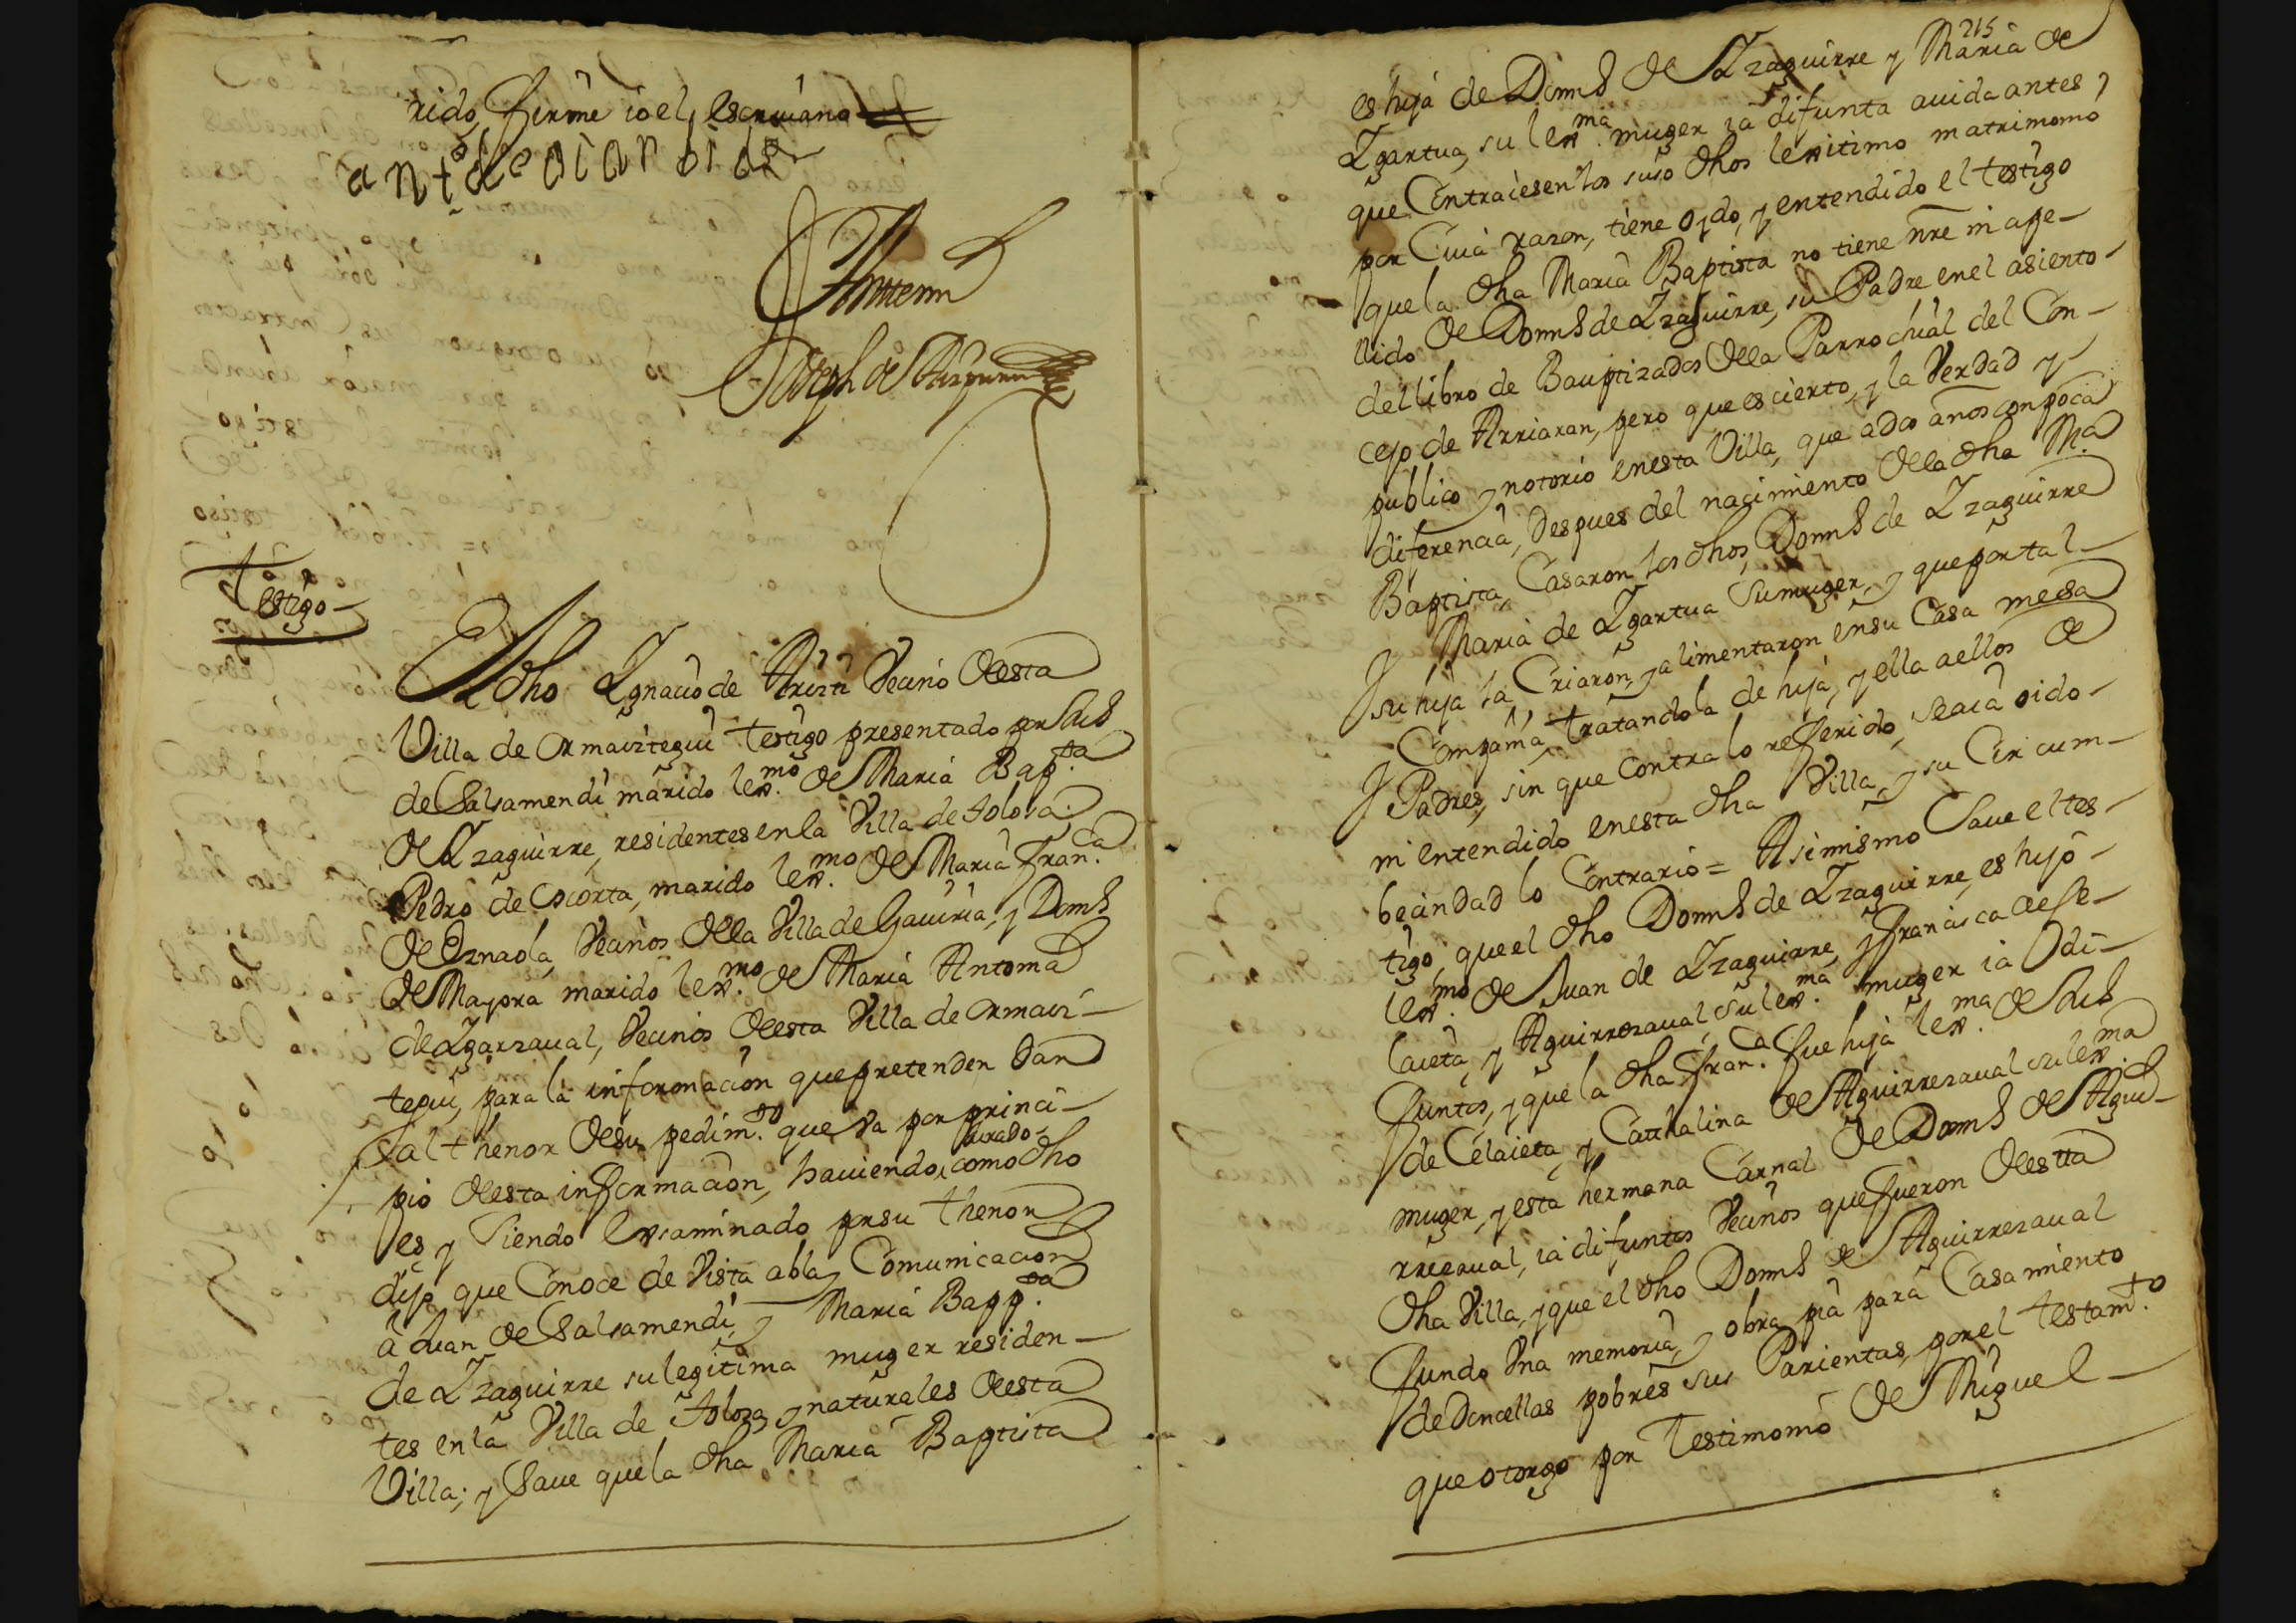 rido, firme io el, escriuano
antº de oiarbide
Antemi
Joseph de
Testigo
El dho Ygnacio de Arizti Vecino desta
Villa de Ormaiztegui testigo presentado por
de Salsamendi marido lexmo. de Maria Bapta.
de Yzaguirre, residentes en la Villa de tolosa;
Pedro de Escorta, marido lexmo. de Maria Franca.
de Oznaola, Vecinos della Villa de Gauiria; y Doms
de Mayora marido lexmo. de Maria Antonia
de Ygarzaual, Vecinos desta Villa de Ormaiz-
tegui, para la informacion que pretenden dar
al thenor de su pedimto. que va por princi-
pio desta informacion, hauiendo jurado como dho
es y Siendo Exsaminado por su thenor
dijo que Conoce de Vista abla y Comunicacion
à Juan de Salsamendi, y Maria Bappta.
de Yzaguirre su legitima muger residen-
tes en la Villa de Tolosa, y naturales desta
Villa; y Saue que la dha Maria Baptista
215
es hija de Domns de Yzaguirre y Maria de
Ygartua, su lexma. muger ia difunta auida antes
que Contraiesen los suso dhos lexitimo matrimonio
por Cuia razon, tiene oydo, y entendido el testigo
que la dha Maria Baptista no tiene nre ni ape-
llido de Domns de Yzaguirre, su Padre en el asiento
del libro de Bauptizados della Parrochial del Con-
cejo de Arriaran, pero que es cierto, y la Verdad y
publico y notorio en esta Villa, que a dos años con poca
diferencia, Despues del nacimiento de la dha Ma.
Baptista, Casaron los dhos, Domns de Yzaguirre
y Maria de Ygartua Su muger, y que por tal
su hija la Criaron, y alimentaron en su Casa mesa
y Compañia, tratandola de hija, y ella a ellos de
Padres, sin que Contra lo referido, se aia oido
ni entendido en esta dha Villa, y su Circum-
becindad lo Contrario = Asimismo Saue el tes-
tigo, que el dho Domns de Yzaguirre, es hijo
lexmo. de Juan de Yzaguirre, y Francisca de Se-
laieta, y Aguirrezaual, su lexma. muger ia Di-
funtos, y que la dha Franca. fue hija lexma. de
de Celaieta, y Catthalina de Aguirrezaual su lexma
muger, y esta hermana Carnal de Domns de Agui-
rrezaual, ia difuntos Vecinos que fueron destta
dha Villa, y que el dho Domns de Aguirrezaual
fundo Vna memoria, y obra pia para Casamiento
de Doncellas pobres sus Parientas, por el testamto.
que otorgo por Testimonio de Miguel